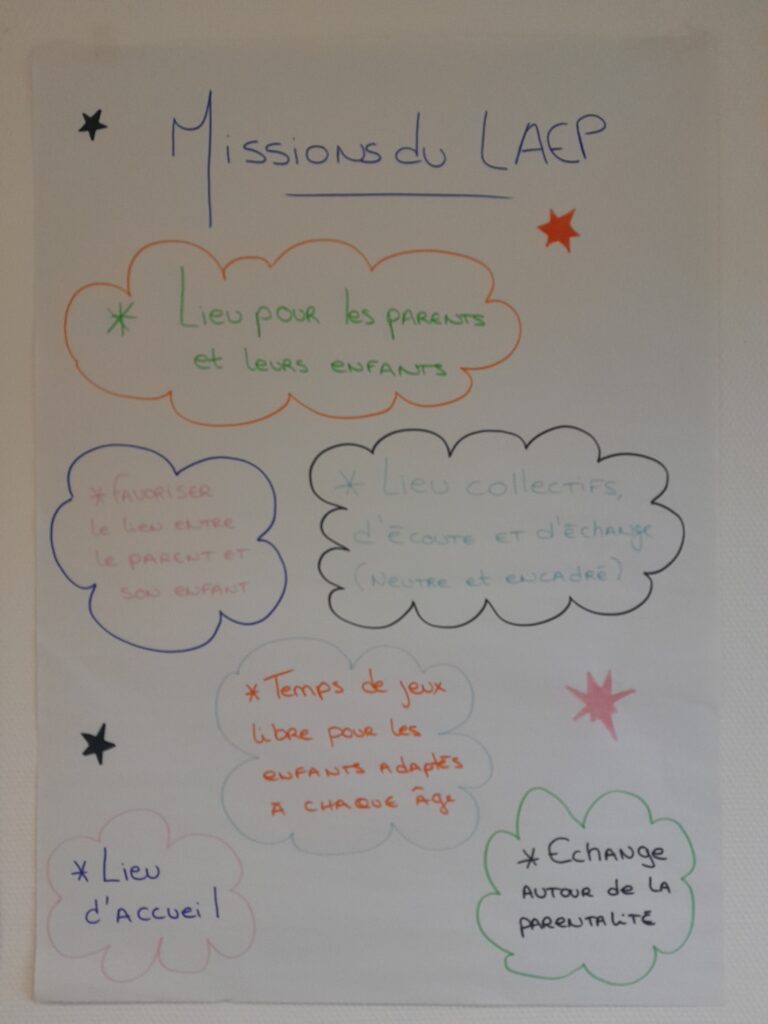 Missions du LAEP
* Lieu pour les parents
et leurs enfants
* favoriser
le lien entre
le parent et
son enfant
* Lieu collectifs,
d'écoute et d'échange
(neutre et encadré)
* Temps de jeux
libre pour les
enfants adaptés
a chaque âge
* Lieu
d'accueil
* Echange
autour de la
parentalité